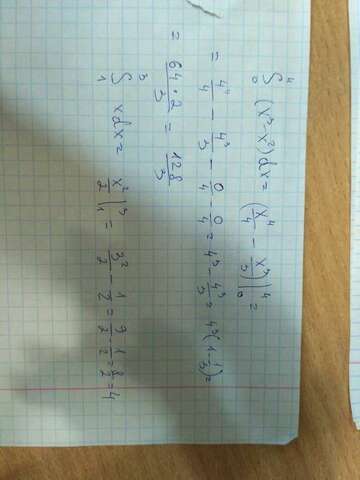 ∫₀⁴ (x³-x²)dx = (x⁴/4 - x³/3)|₀⁴ =
= 4⁴/4 - 4³/3 - 0/4 - 0/4 = 4³ - 4³/3 = 4³(1-1/3) =
= 64·2/3 = 128/3
∫₁³ xdx = x²/2|₁³ = 3²/2 - 1/2 = 9/2 - 1/2 = 8/2 = 4